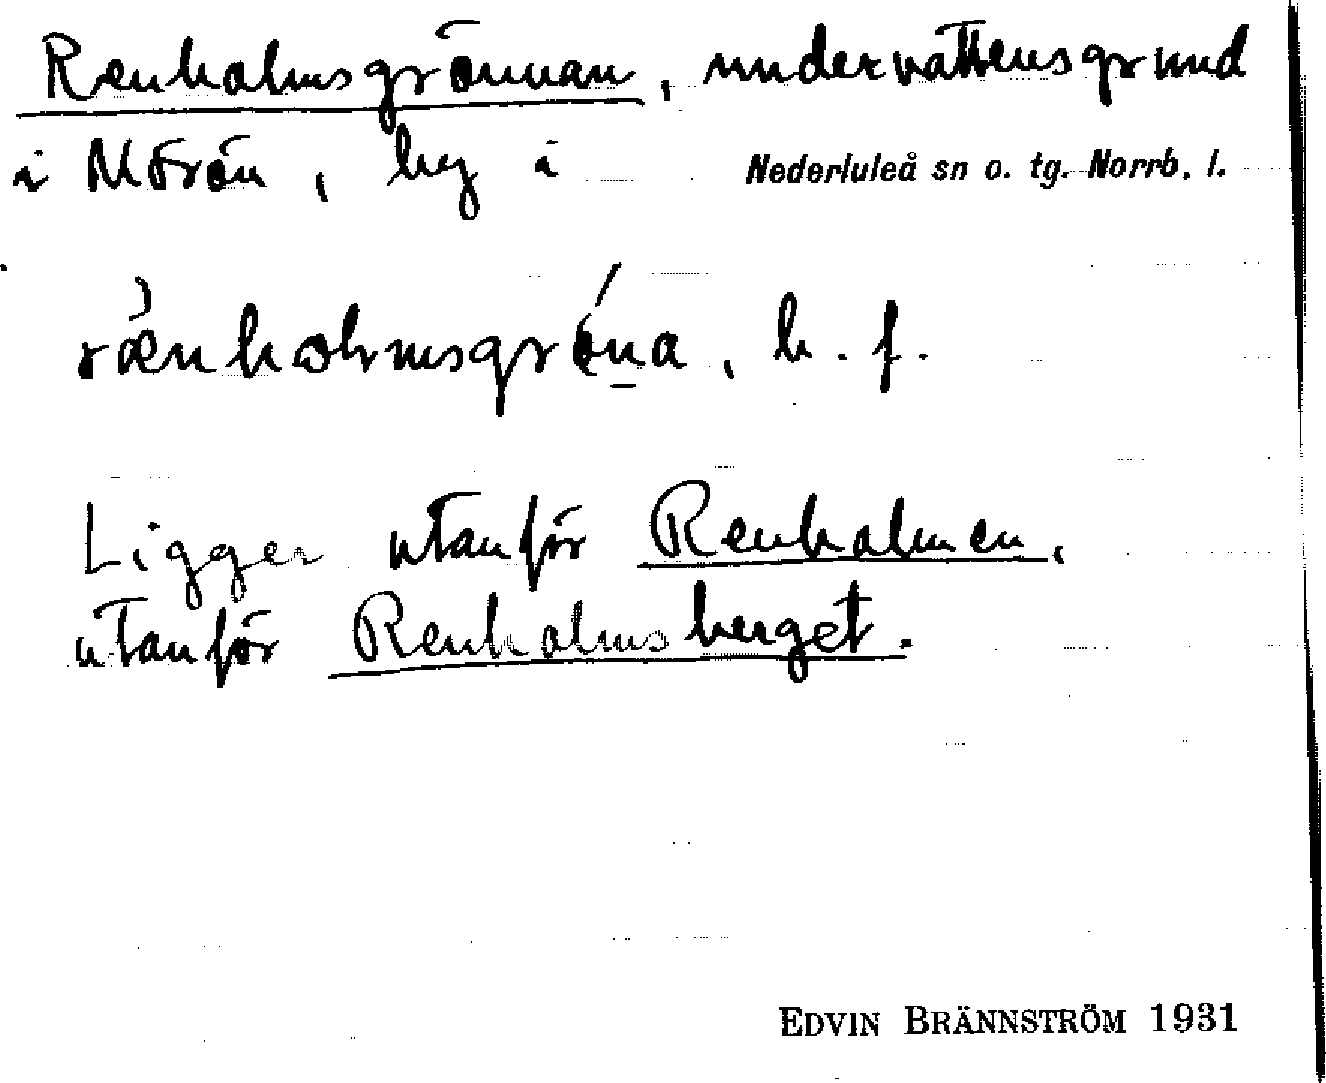 Renholmsgrönnan, undervattensgrund
i Mörön, by i Nederluleå sn o. tg. Norrb. l.
rænholmsgröna, b. f.
Ligger utanför Renholmen,
utanför Renholmsberget.
EDVIN BRÄNNSTRÖM 1931